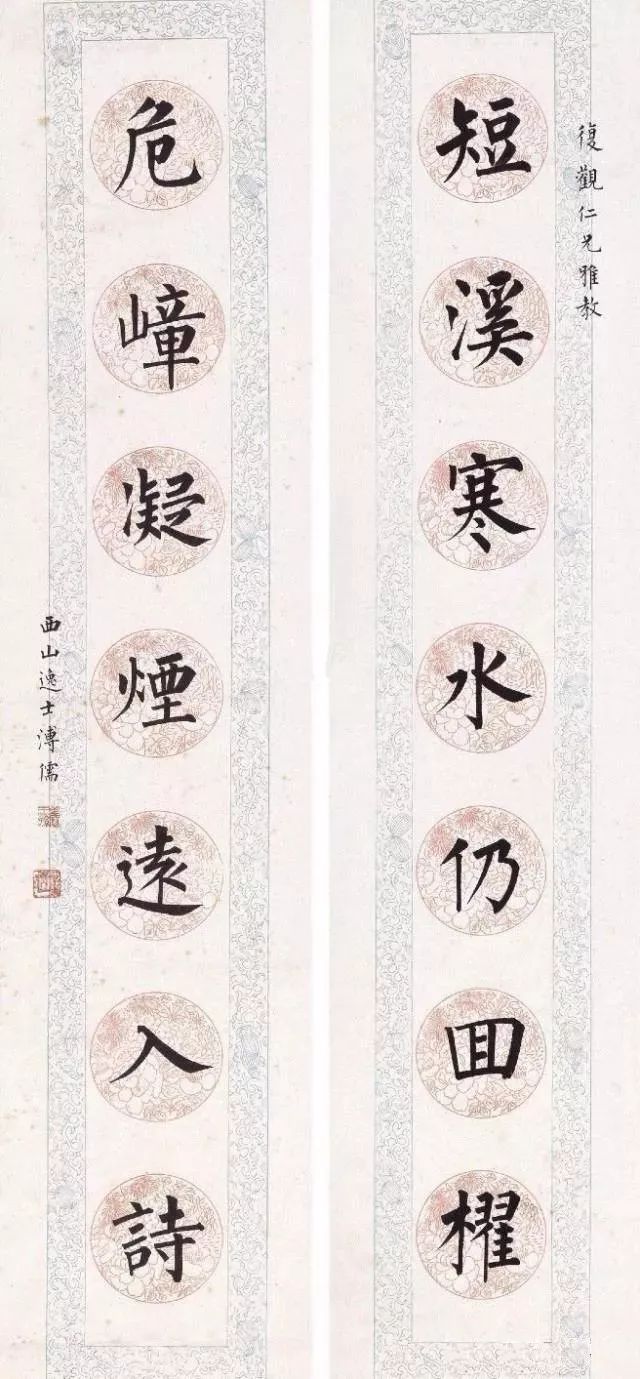 復觀仁兄雅教
短溪寒水仍回櫂
危嶂凝煙遠入詩
西山逸士溥儒